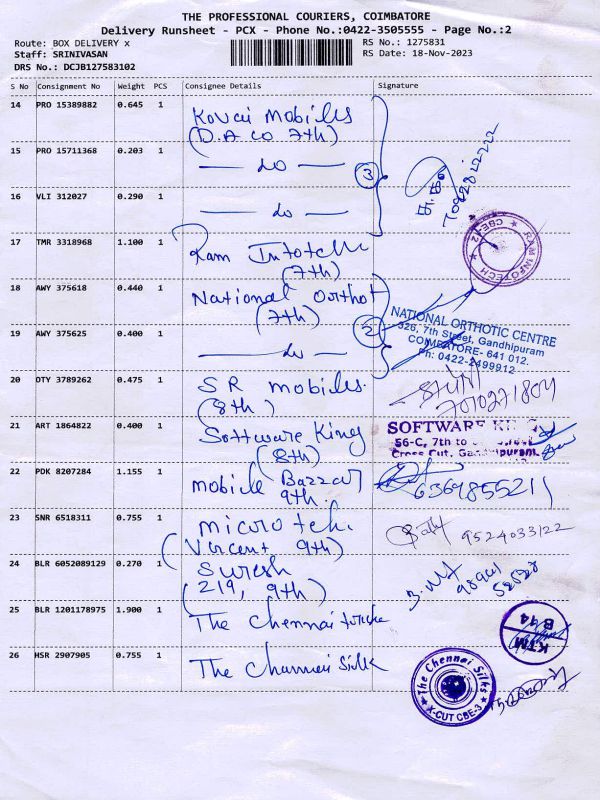 THE PROFESSIONAL COURIERS, COIMBATORE
Delivery Runsheet - PCX - Phone No.:0422-3505555 - Page No.:2
Route: BOX DELIVERY x
RS No.: 1275831
Staff: SRINIVASAN
RS Date: 18-Nov-2023
DRS No.: DCJB127583102
S No Consignment No Weight PCS Consignee Details Signature
14 PRO 15389882 0.645 1 Kovai Mobiles
(D.A Co 7th)
15 PRO 15711368 0.203 1 — do —
16 VLI 312027 0.290 1 — do —
3
17 TMR 3318968 1.100 1 Ram Infotech
(7th)
RAM INFOTECH ★ CBE-12 ★
18 AWY 375618 0.440 1 National Orthot
(7th)
19 AWY 375625 0.400 1 — do —
2
NATIONAL ORTHOTIC CENTRE
326, 7th Street, Gandhipuram
COIMBATORE- 641 012.
Ph: 0422-2499912
20 DTY 3789262 0.475 1 SR mobiles
(8th)
7010271804
21 ART 1864822 0.400 1 Software King
(8th)
SOFTWARE KING
56-C, 7th to
Cross Cut, Gandhipuram,
22 PDK 8207284 1.155 1 mobile Bazzar
9th.
6369855211
23 SNR 6518311 0.755 1 microtech.
(Vincent 9th)
9524033122
24 BLR 6052089129 0.270 1 Suresh
(219, 9th)
98941
52528
25 BLR 1201178975 1.900 1 The Chennai
KTM
B 44
26 HSR 2907905 0.755 1 The Chennai Silk
The Chennai Silks
★ X-CUT CBE-3 ★